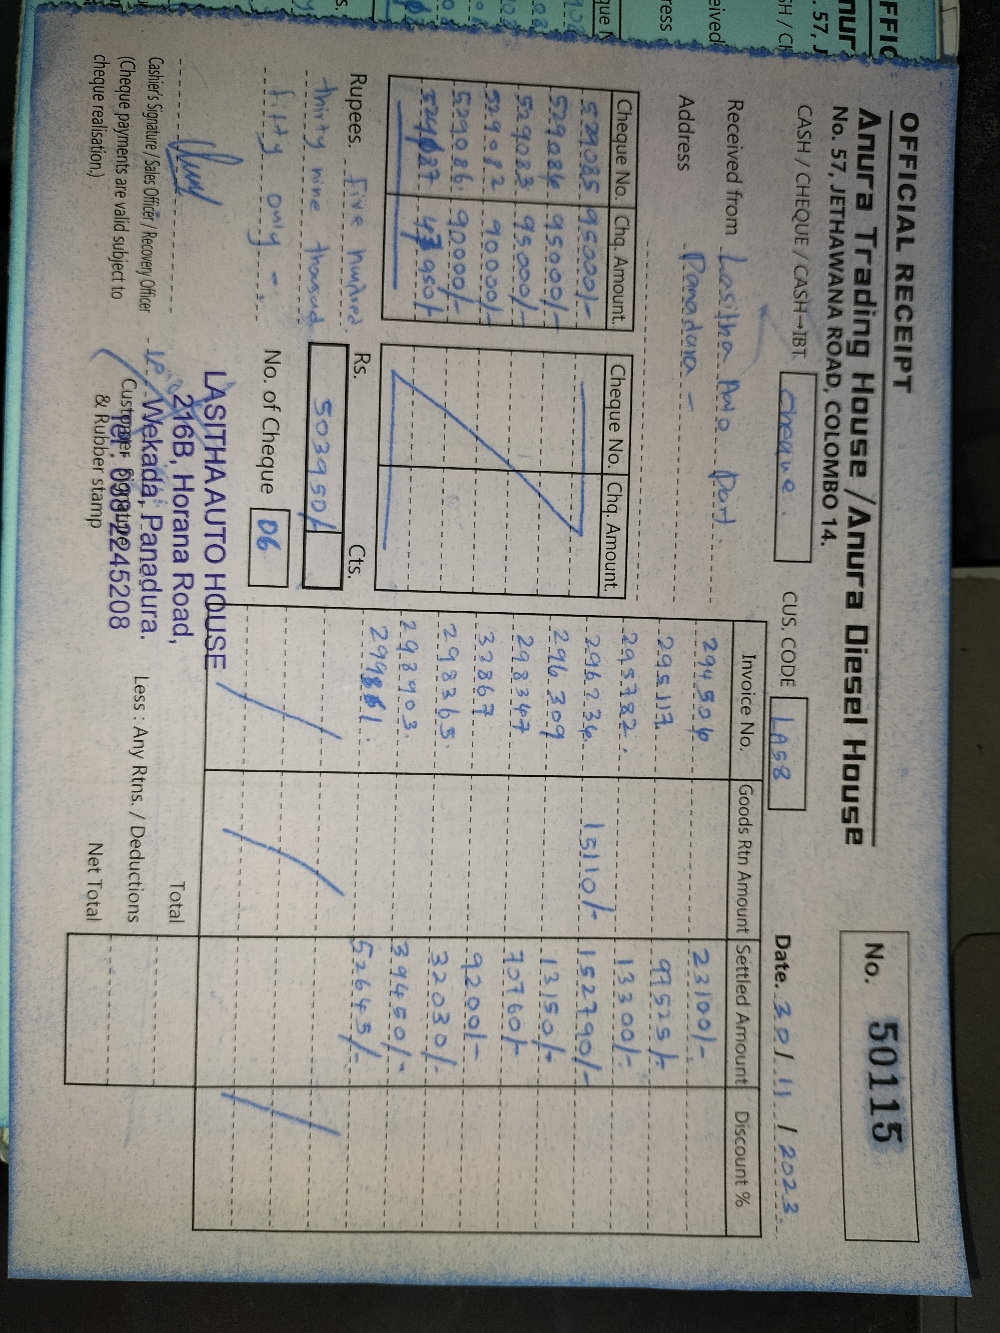 OFFICIAL RECEIPT
Anura Trading House / Anura Diesel House
No. 57, JETHAWANA ROAD, COLOMBO 14.
No. 50115
CASH / CHEQUE / CASH→IBT Cheque. CUS. CODE LAS8 Date. 30 / 11 / 2023
Received from Lasitha Auto Part.
Address Panadura -
Cheque No. Chq. Amount. Cheque No. Chq. Amount.
529085 95000/-
529084 95000/-
529083 95000/-
529082 90000/-
529086 90000/-
950/-
Invoice No. Goods Rtn Amount Settled Amount Discount %
294506 23100/-
295117 97525/-
295782. 13300/-
296234 15110/- 152790/-
296309 13150/-
298347 70760/-
33867 9200/-
298365 32030/-
298903 39450/-
52645/-
Rupees. five hundred
thirty nine thousand
fifty only -
Rs. 503950/- Cts.
No. of Cheque 06
Cashier's Signature / Sales Officer / Recovery Officer
(Cheque payments are valid subject to
cheque realisation.)
LASITHA AUTO HOUSE
216B, Horana Road,
Wekada, Panadura.
Tel: 0382245208
Customer Signature
& Rubber stamp
Total
Less : Any Rtns. / Deductions
Net Total